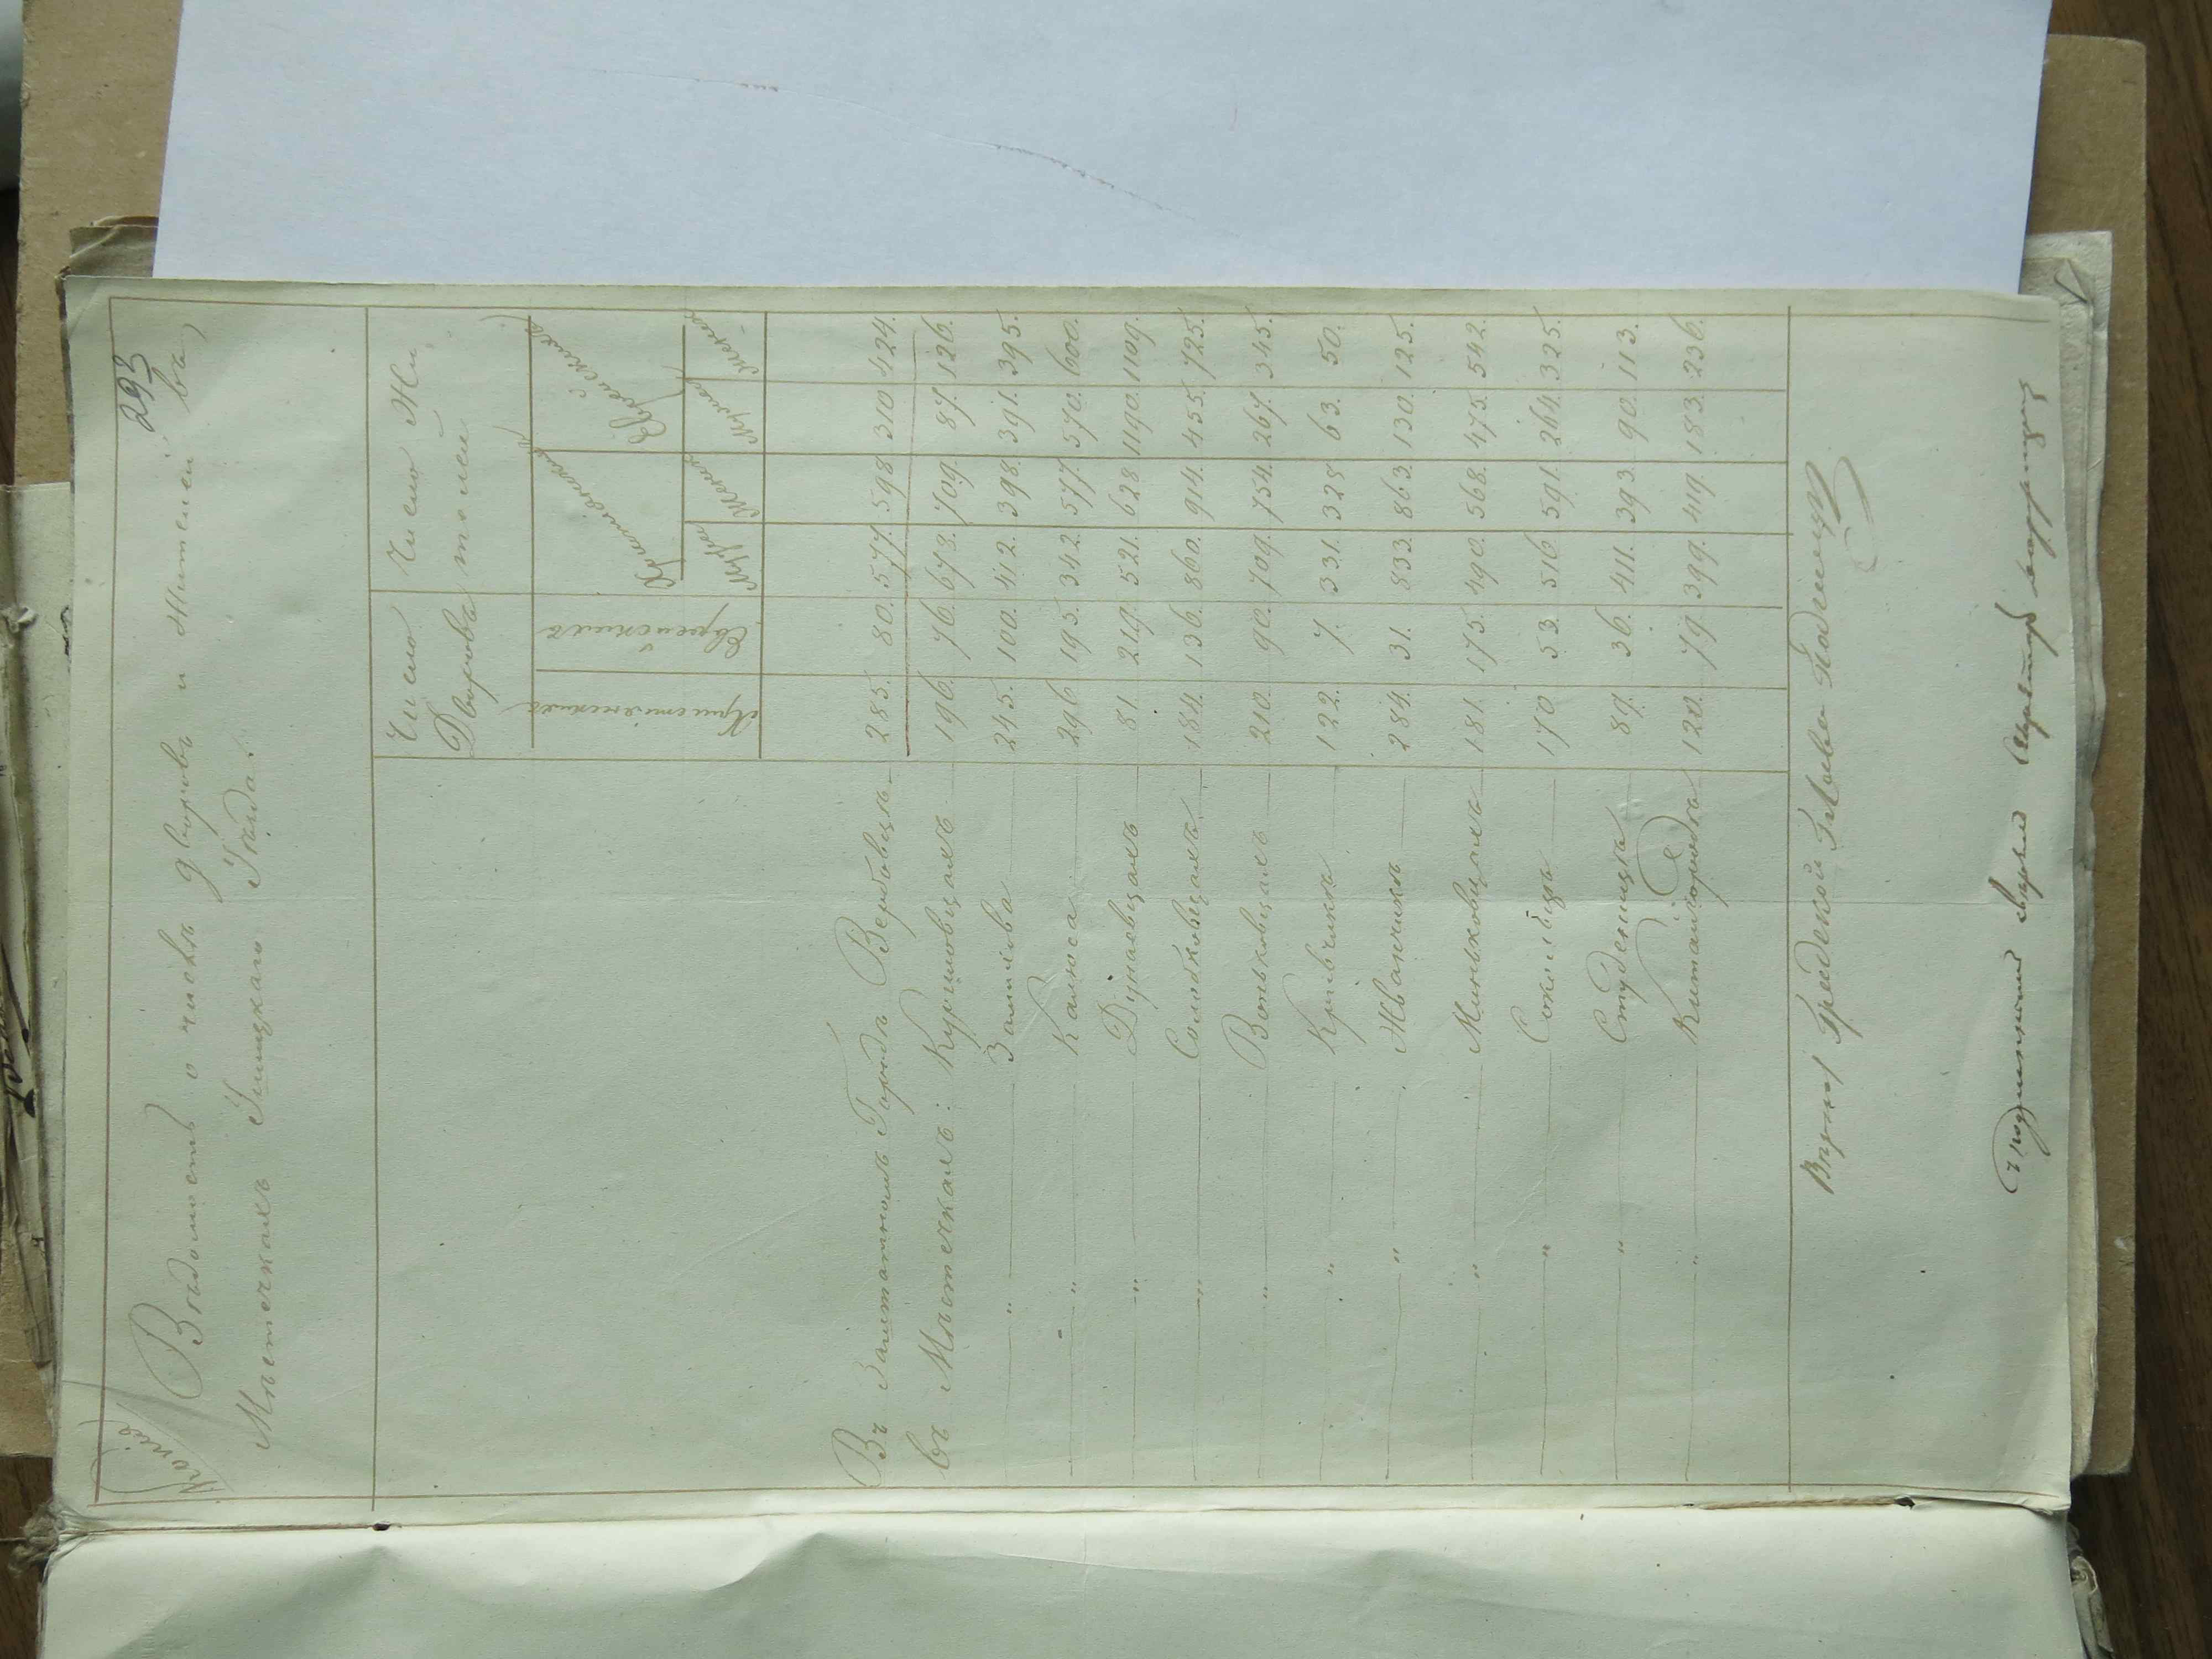 293
Копія
Вѣдомость о числѣ дворовъ и жителей въ
Мѣстечкахъ Ушицкаго Уѣзда.
Число Дворовъ
Число Жителей
Христіянскихъ
Еврейскихъ
Христіянскихъ
Еврейскихъ
Мужес
Женск
Мужес
Женск
Въ Заштатномъ Городѣ Вербовцѣ 285. 80. 577. 598. 310 424.
Въ Мѣстечкахъ: Куриловцахъ 196. 76. 673. 709. 87. 126.
" Замѣхова 245. 100. 412. 398. 391. 395.
" Калюса 296 195. 342. 577. 570. 600.
" Дунаевцахъ 81. 219. 521. 628 1190. 1109.
" Солобковцахъ 184. 136. 860. 914. 455. 725.
" Воньковцахъ 210. 90. 709. 754. 267. 345.
" Кривчикѣ 122. 7. 331. 328 63. 50.
" Жванчикѣ 284. 31. 833. 863. 130. 125.
" Миньковцахъ 181. 175. 490. 568. 475. 542.
" Соколѣцѣ 170. 53. 516 591. 264. 325.
" Студеницѣ 87. 36. 411. 393. 90. 113.
" Китайгородѣ 120. 79. 399. 419. 183. 236.
Вѣрно: Градской Глава
Съ подлиннымъ вѣрно Секретарь